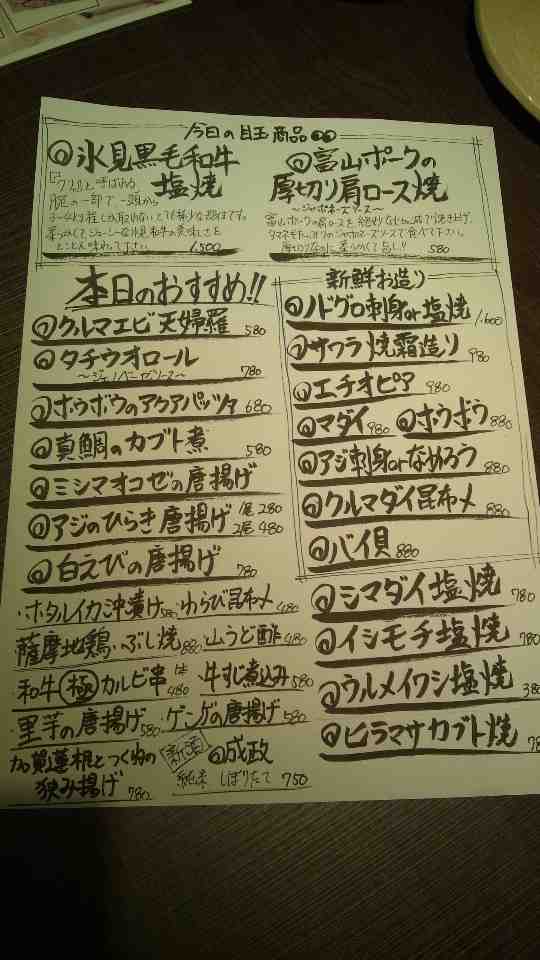 今日の目玉商品
氷見黒毛和牛
塩焼
と呼ばれる
腕の一部で、一頭から
柔らかくてジューシーな氷見和牛の美味しさを
とことん味わって下さい。
1,500
富山ポークの
厚切り肩ロース焼
〜ジャポネーズソース〜
富山ポークの肩ロースを絶妙な火加減で焼き上げ、
タマネギたっぷりのジャポネーズソースで食べて下さい。
厚切りなのに柔らかくて旨し!!
580
本日のおすすめ!!
クルマエビ天婦羅 580
タチウオロール 780
〜ジェノベーゼソース〜
ホウボウのアクアパッツァ 680
真鯛のカブト煮 580
ミシマオコゼの唐揚げ
アジのひらき唐揚げ 1尾 280
2尾 480
白えびの唐揚げ 780
・ホタルイカ沖漬け 580
・わらび昆布〆 480
薩摩地鶏いぶし焼 880
・山うど酢 480
・和牛極カルビ串 1本 480
・牛すじ煮込み 580
・里芋の唐揚げ 580
・ゲンゲの唐揚げ 580
加賀蓮根とつくねの
狭み揚げ 780
新酒
成政
純米 しぼりたて 750
新鮮お造り
ノドグロ刺身or塩焼 1,600
サワラ焼霜造り 980
エチオピア 980
マダイ 980
ホウボウ 880
アジ刺身orなめろう 880
クルマダイ昆布〆 880
バイ貝 880
シマダイ塩焼 780
イシモチ塩焼 780
ウルメイワシ塩焼 380
ヒラマサカブト焼